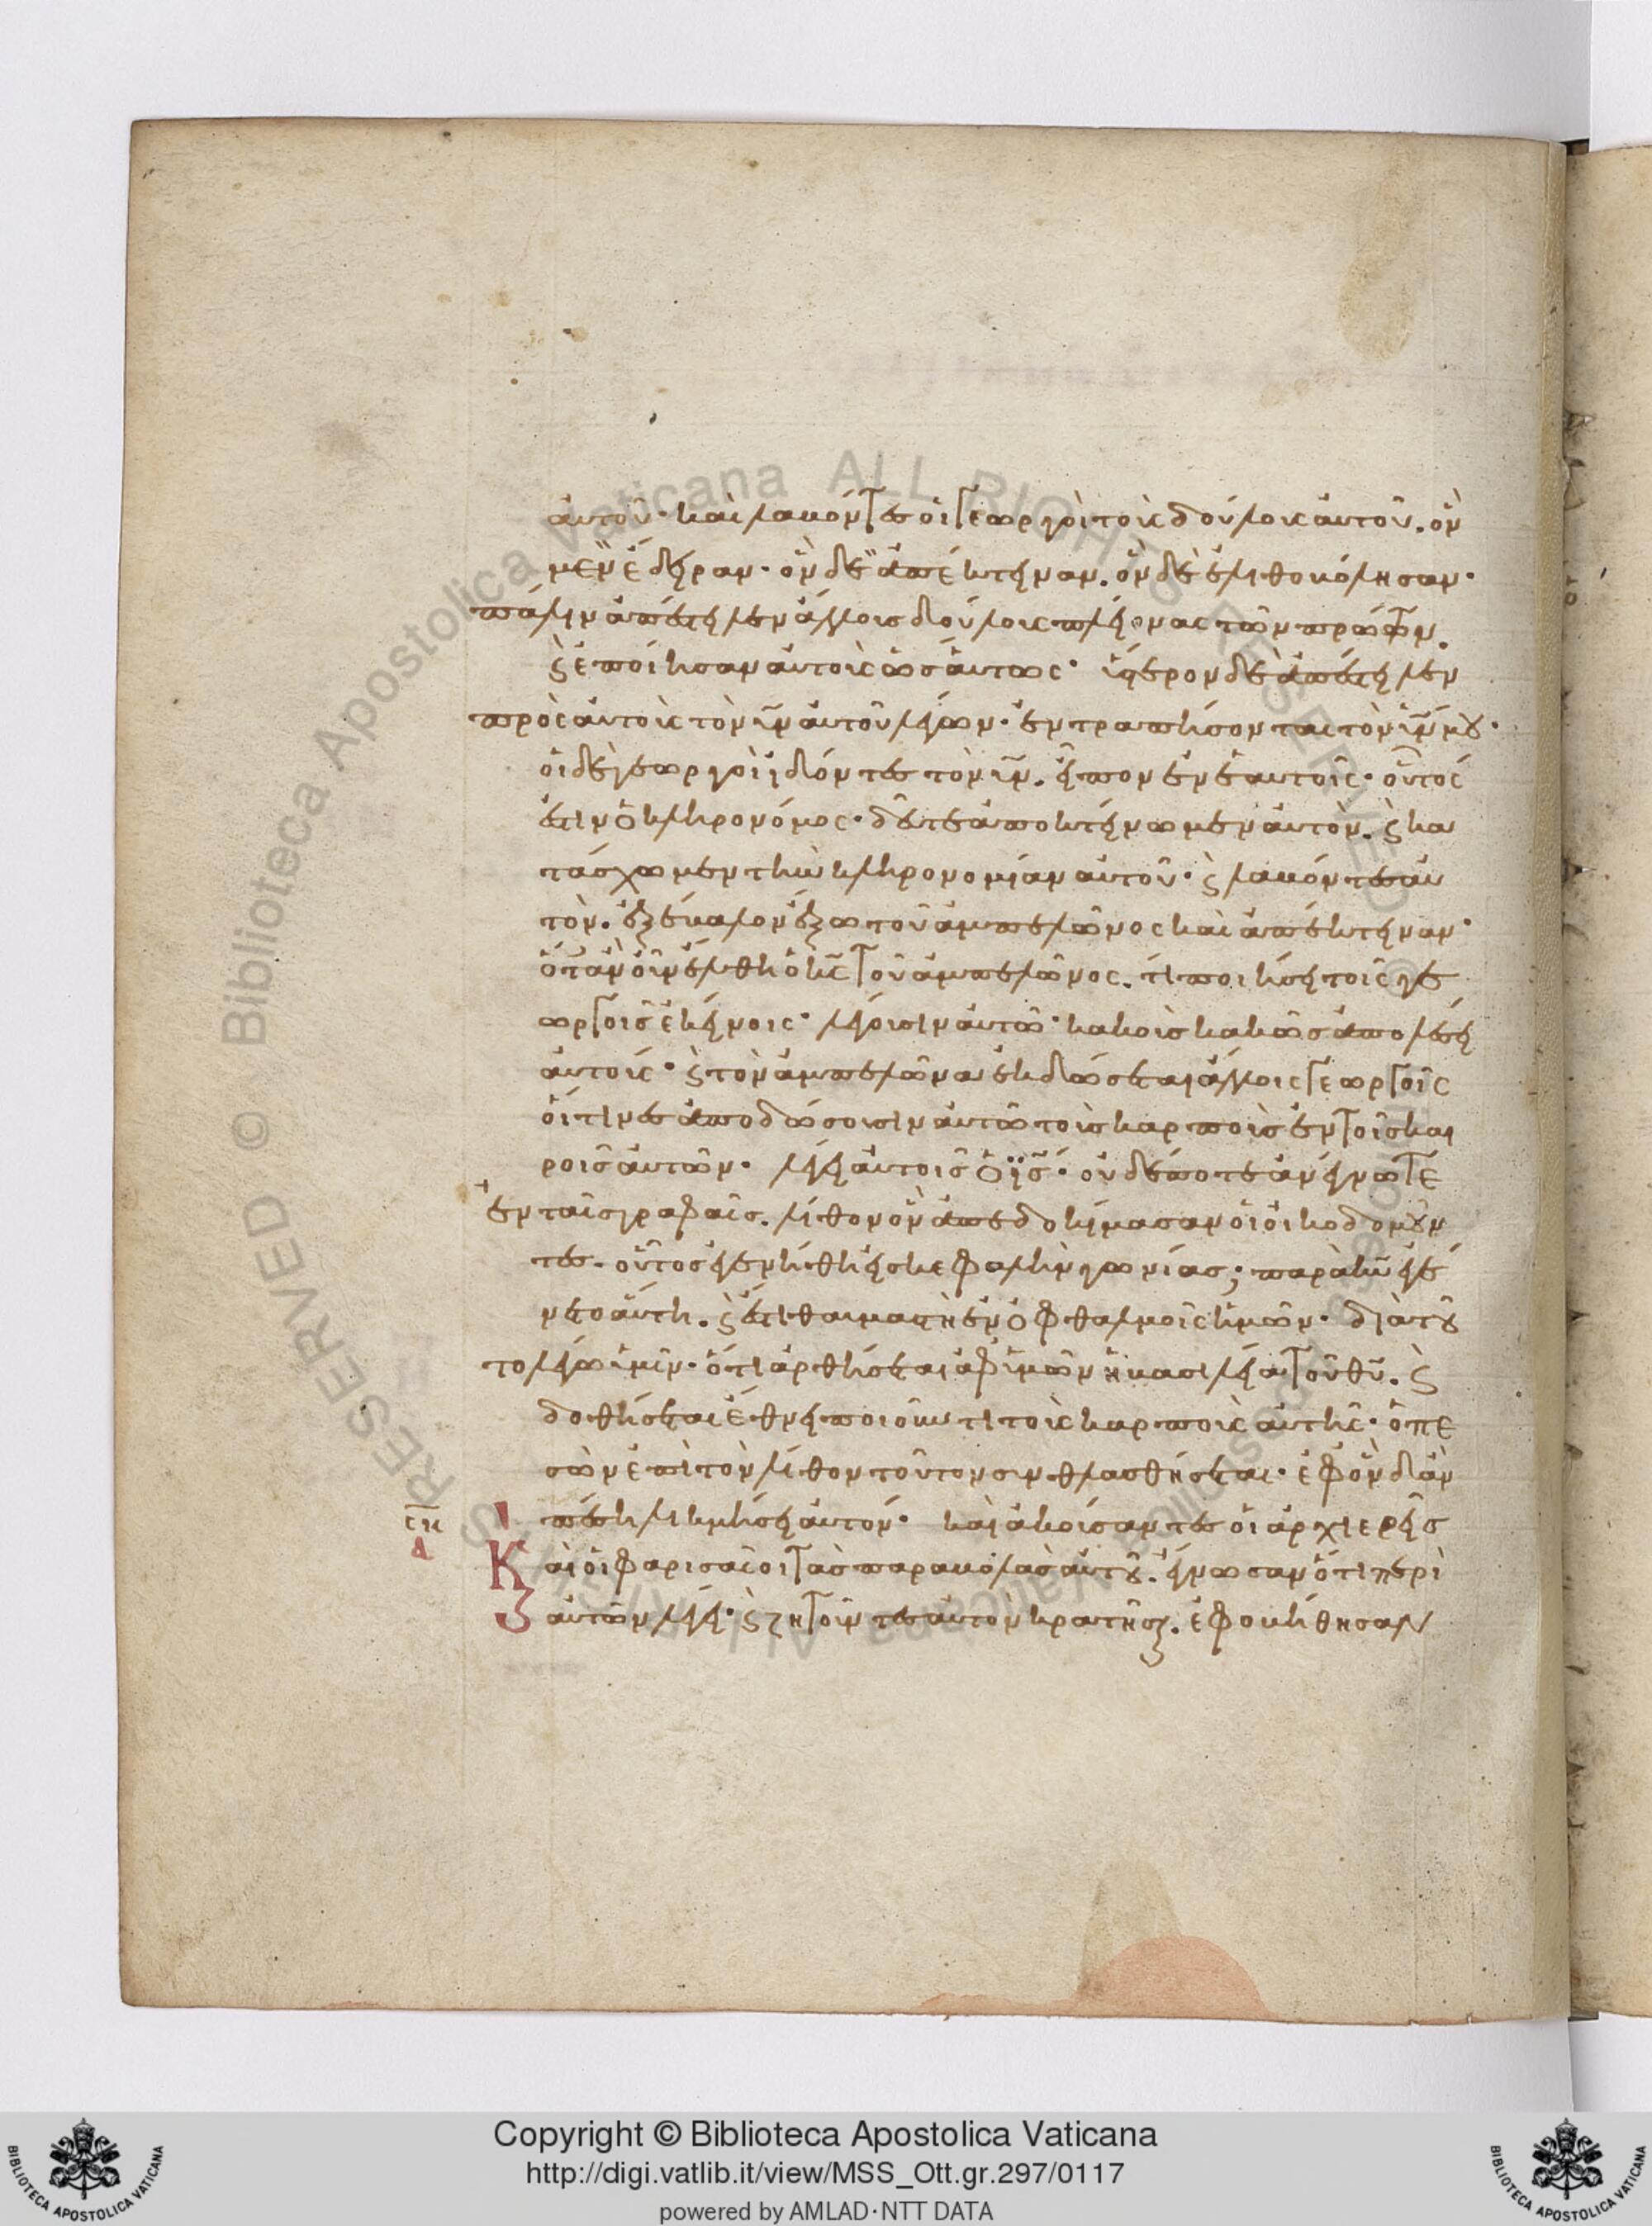 αὐτοῦ· καὶ λαβόντες οἱ γεωργοὶ τοὺς δούλους αὐτοῦ. ὃν
μὲν ἔδειραν· ὃν δὲ ἀπέκτειναν. ὃν δὲ ἐλιθοβόλησαν·
πάλιν ἀπέστειλεν ἄλλους δούλους πλείονας τῶν πρώτων.
ϗ ἐποίησαν αὐτοῖς ὡσαύτως· ὕστερον δὲ ἀπέστειλεν
πρὸς αὐτοὺς τὸν υν αὐτοῦ λέγων· ἐντραπήσονται τὸν υν μου·
οἱ δὲ γεωργοὶ ἰδόντες τὸν υν. εἶπον ἐν ἑαυτοῖς· οὗτός
ἐστιν ὁ κληρονόμος· δεῦτε ἀποκτείνωμεν αὐτὸν. ϗ κα
τάσχωμεν τὴν κληρονομίαν αὐτοῦ· ϗ λαβόντες αὐ
τὸν. ἐξέβαλον ἔξω τοῦ ἀμπελῶνος καὶ ἀπέκτειναν·
ὅταν οὖν ἔλθῃ ὁ κς τοῦ ἀμπελῶνος. τί ποιήσει τοῖς γε
ωργοῖς ἐκείνοις· λέγουσιν αὐτῷ· κακοὺς κακῶς ἀπολέσει
αὐτούς· ϗ τὸν ἀμπελῶνα ἐκδώσεται ἄλλοις γεωργοῖς
οἵτινες ἀποδώσουσιν αὐτῷ τοὺς καρποὺς ἐν τοῖς και
ροῖς αὐτῶν· λέγει αὐτοῖς ὁ ις· οὐδέποτε ἀνέγνωτε
ἐν ταῖς γραφαῖς. λίθον ὃν ἀπεδοκίμασαν οἱ οἰκοδομοῦν
τες. οὗτος ἐγενήθη εἰς κεφαλὴν γωνίας; παρὰ κυ ἐγέ
νετο αὕτη. ϗ ἔστι θαυμαστὴ ἐν ὀφθαλμοῖς ἡμῶν· διὰ τοῦ
το λέγω ὑμῖν· ὅτι ἀρθήσεται ἀφ' ὑμῶν ἡ βασιλεία τοῦ θυ. ϗ
δοθήσεται ἔθνει ποιοῦντι τοὺς καρποὺς αὐτῆς· ὁ πε
σὼν ἐπὶ τὸν λίθον τοῦτον συνθλασθήσεται· ἐφ' ὃν δ' ἂν
πέσῃ λικμήσει αὐτόν· καὶ ἀκούσαντες οἱ ἀρχιερεῖς
Καὶ οἱ φαρισαῖοι τὰς παραβολὰς αὐτοῦ. ἔγνωσαν ὅτι περὶ
αὐτῶν λέγει· ϗ ζητοῦντες αὐτὸν κρατῆσαι. ἐφοβήθησαν
Copyright © Biblioteca Apostolica Vaticana
http://digi.vatlib.it/view/MSS_Ott.gr.297/0117
powered by AMLAD·NTT DATA